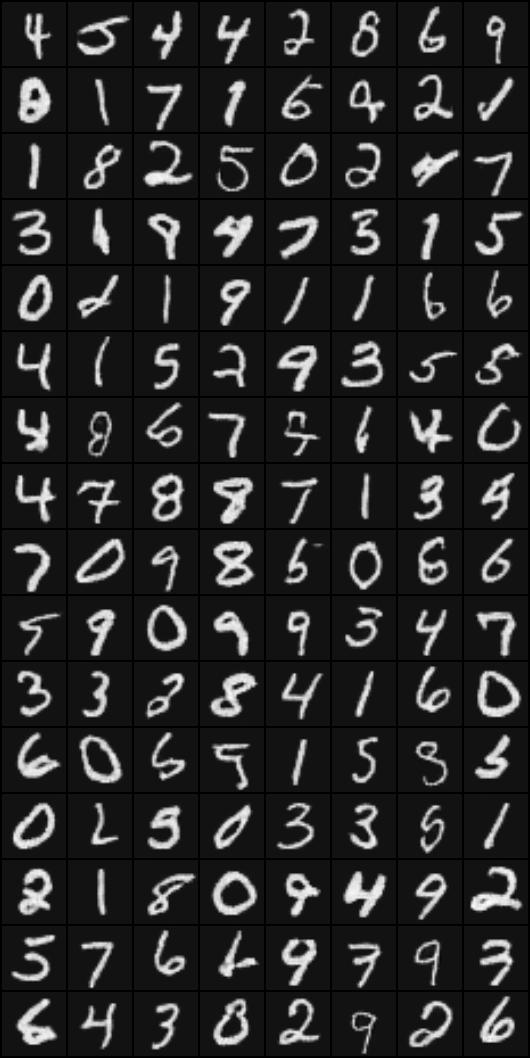 4 5 4 4 2 8 6 9
8 1 7 1 6 9 2 1
1 8 2 5 0 2 4 7
3 1 9 4 7 3 1 5
0 2 1 9 1 1 6 6
4 1 5 2 9 3 5 5
4 8 6 7 5 1 4 0
4 7 8 8 7 1 3 5
7 0 9 8 5 0 6 6
5 9 0 9 9 3 4 7
3 3 2 8 4 1 6 0
6 0 5 5 1 5 8 5
0 2 5 0 3 3 5 1
2 1 8 0 9 4 9 2
5 7 6 6 9 7 9 3
6 4 3 8 2 9 2 6